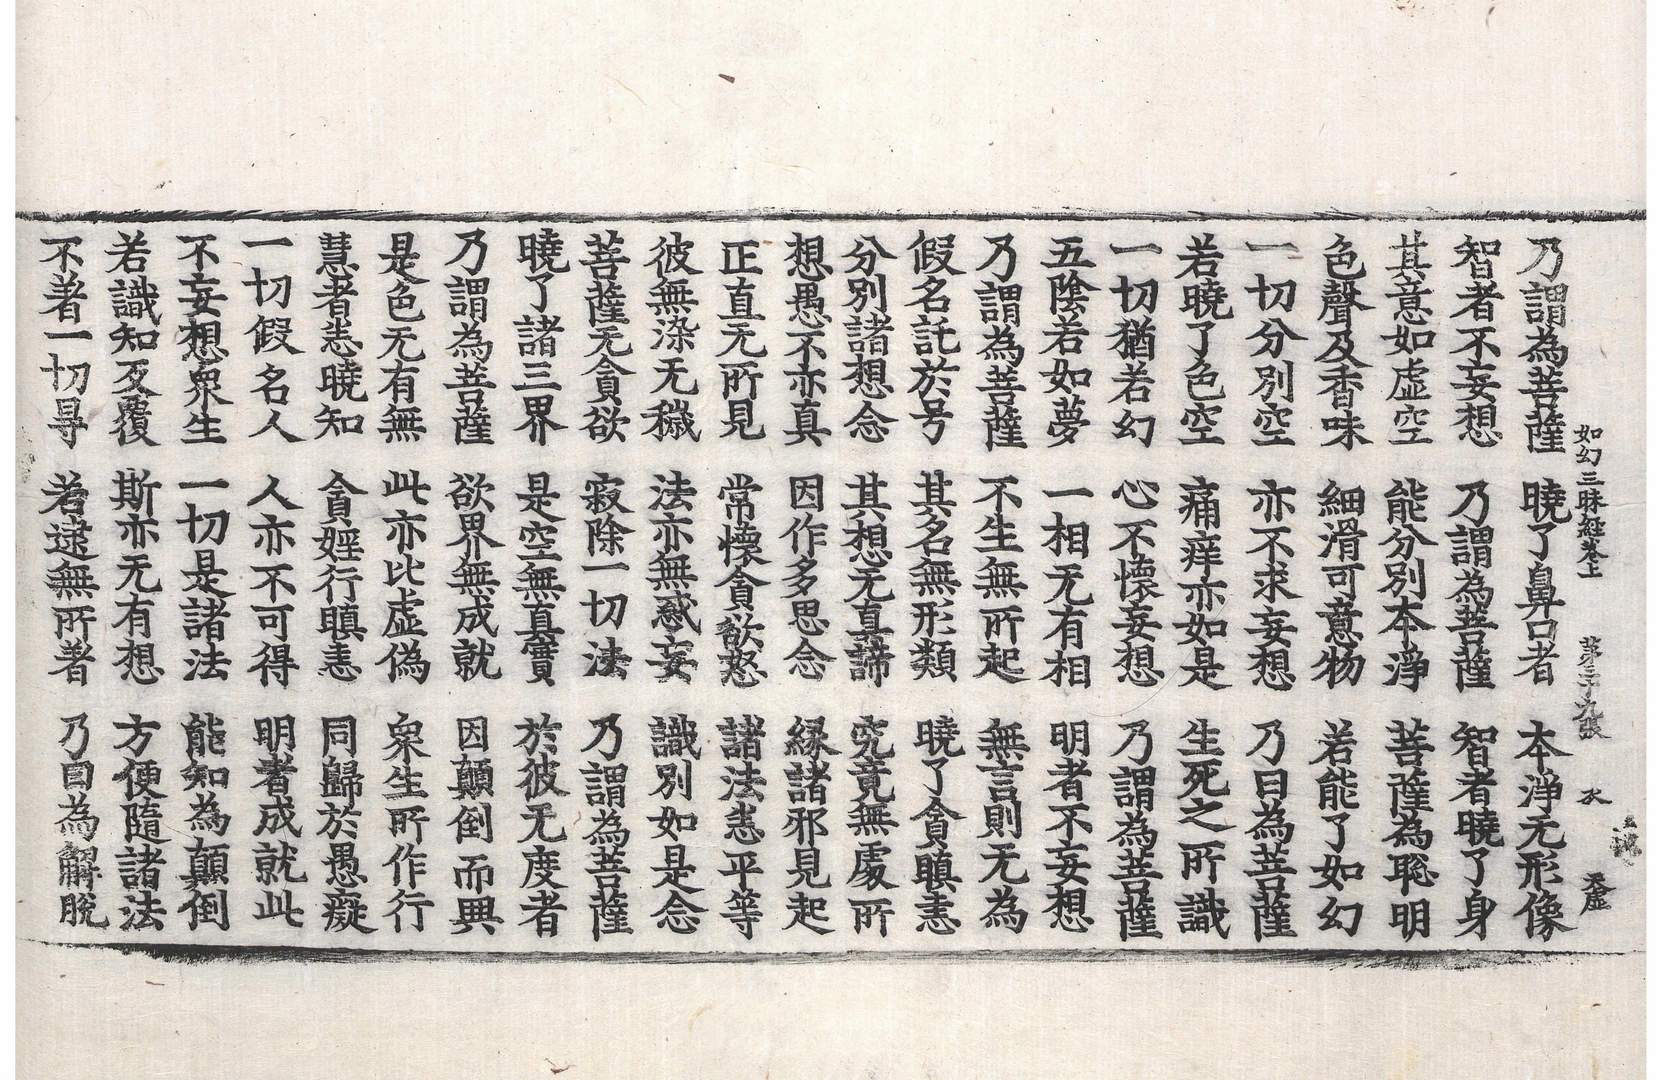 如幻三昧經卷上 第二十九張 水 天虛
乃謂為菩薩 曉了鼻口者 本淨无形像
智者不妄想 乃謂為菩薩 智者曉了身
其意如虛空 能分別本淨 菩薩為聡明
色聲及香味 細滑可意物 若能了如幻
一切分別空 亦不求妄想 乃曰為菩薩
若曉了色空 痛痒亦如是 生死之所識
一切猶若幻 心不懷妄想 乃謂為菩薩
五陰若如夢 一相无有相 明者不妄想
乃謂為菩薩 不生無所起 無言則无為
假名託於号 其名無形類 曉了貪瞋恚
分別諸想念 其想无真諦 究竟無處所
想愚不亦真 因作多思念 緣諸邪見起
正直无所見 常懷貪欲怒 諸法悉平等
彼無染无穢 法亦無惑妄 識別如是念
菩薩无貪欲 寂除一切法 乃謂為菩薩
曉了諸三界 是空無真實 於彼无度者
乃謂為菩薩 欲界無成就 因顛倒而興
是色无有無 此亦比虛偽 衆生所作行
慧者悉曉知 貪婬行瞋恚 同歸於愚癡
一切假名人 人亦不可得 明者成就此
不妄想衆生 一切是諸法 能知為顛倒
若識知反覆 斯亦无有想 方便隨諸法
不著一切尋 若逮無所著 乃曰為解脫